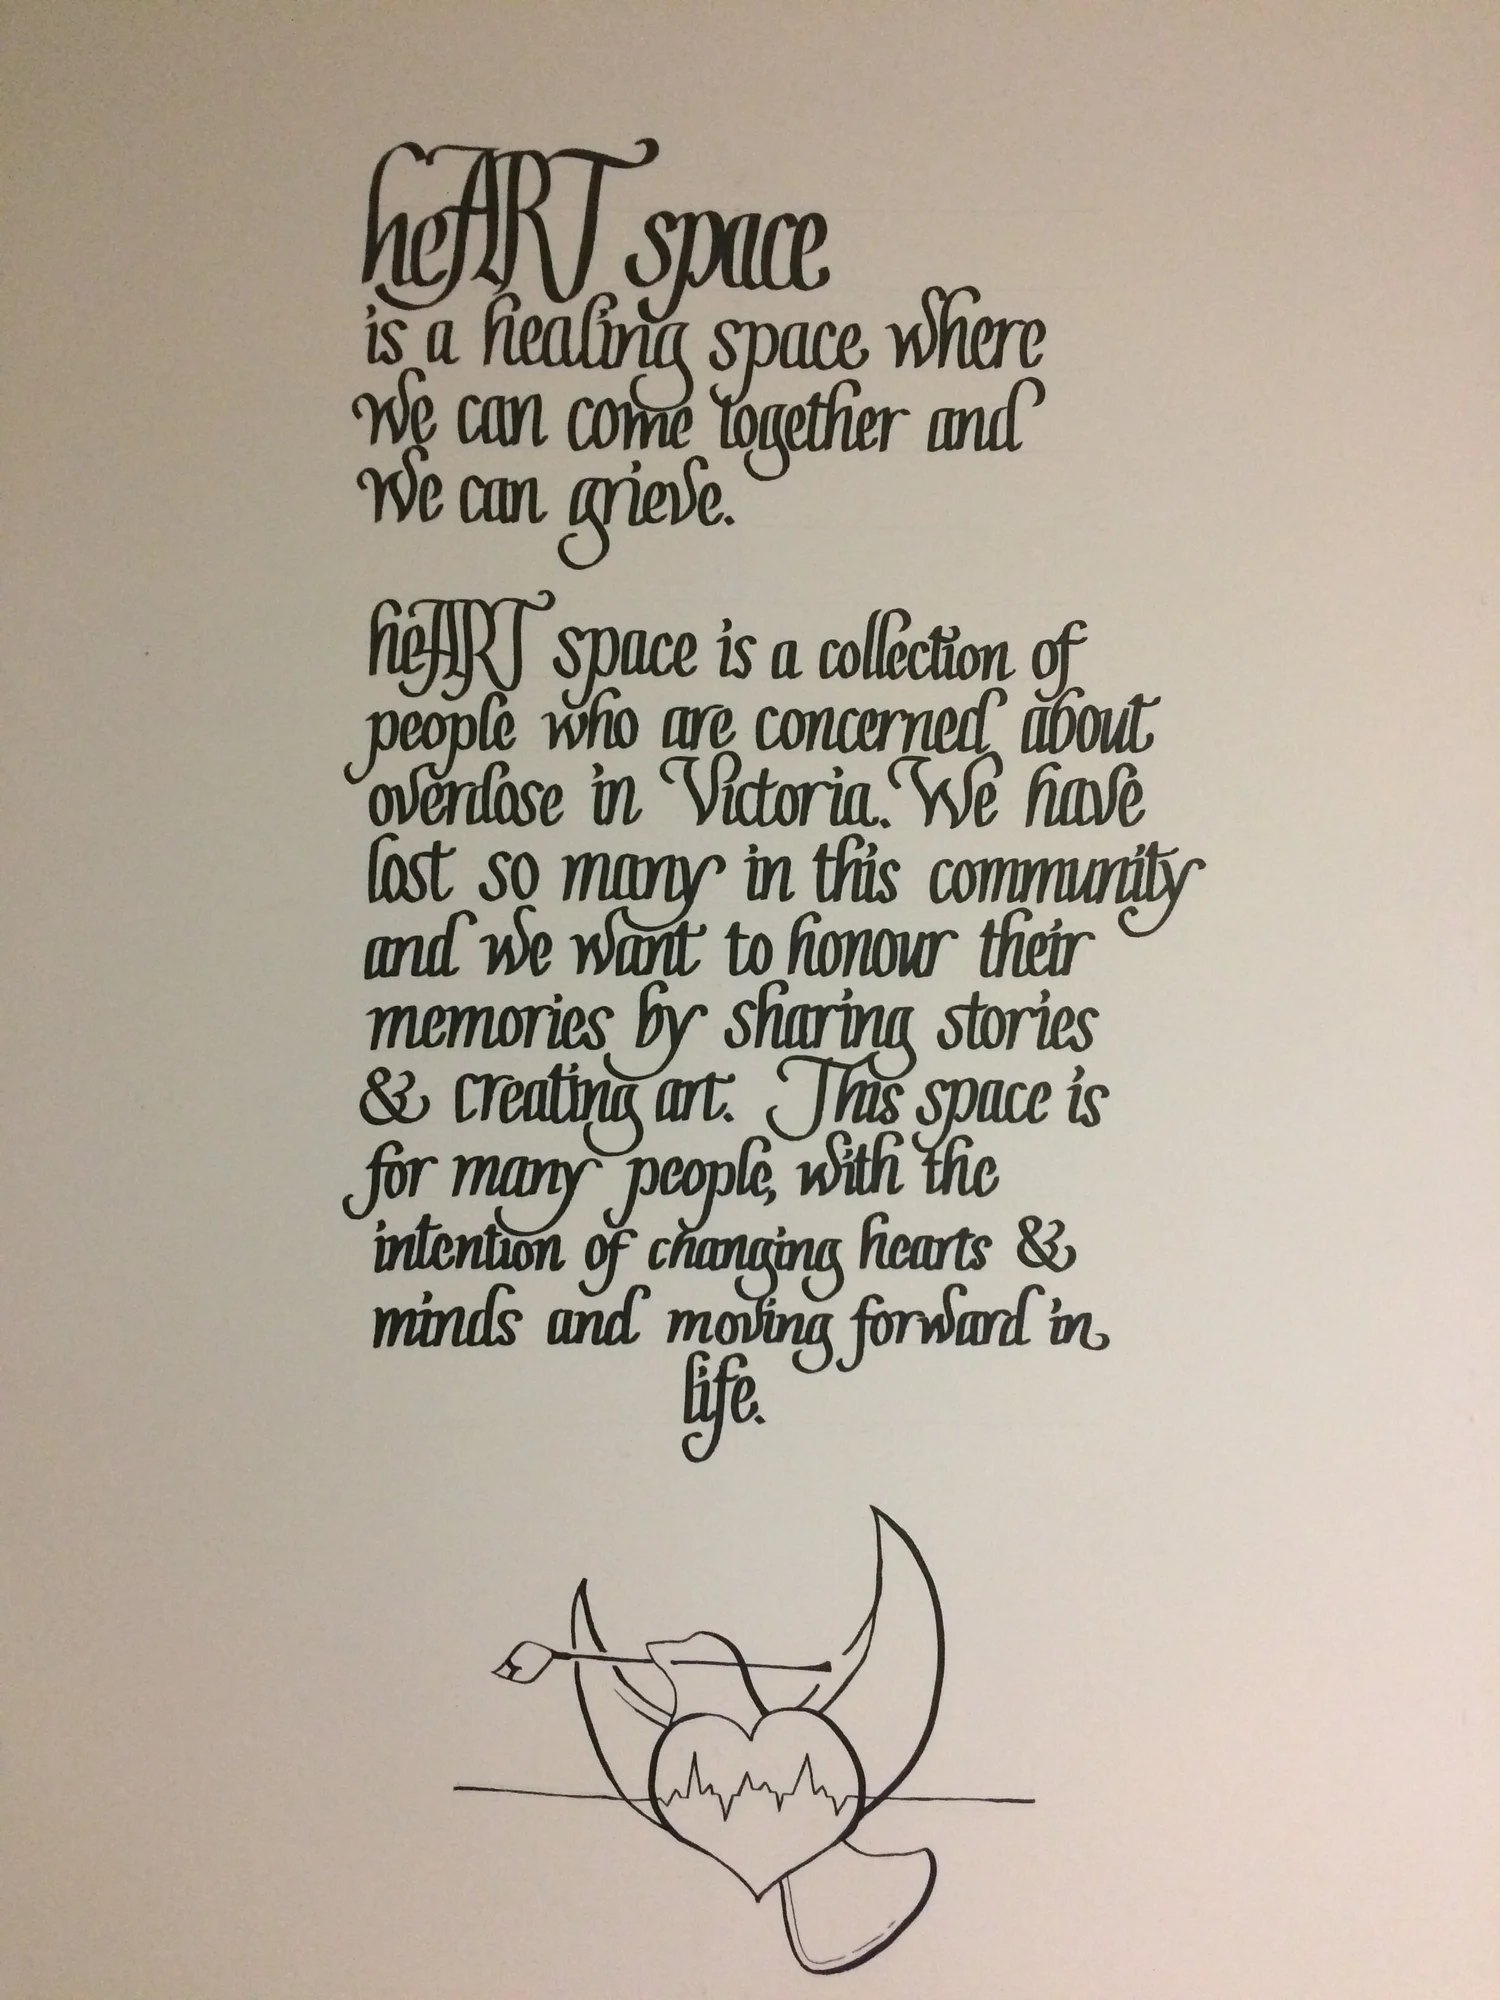 heART space
is a healing space where
we can come together and
we can grieve.
heART space is a collection of
people who are concerned about
overdose in Victoria. We have
lost so many in this community
and we want to honour their
memories by sharing stories
& creating art. This space is
for many people, with the
intention of changing hearts &
minds and moving forward in
life.